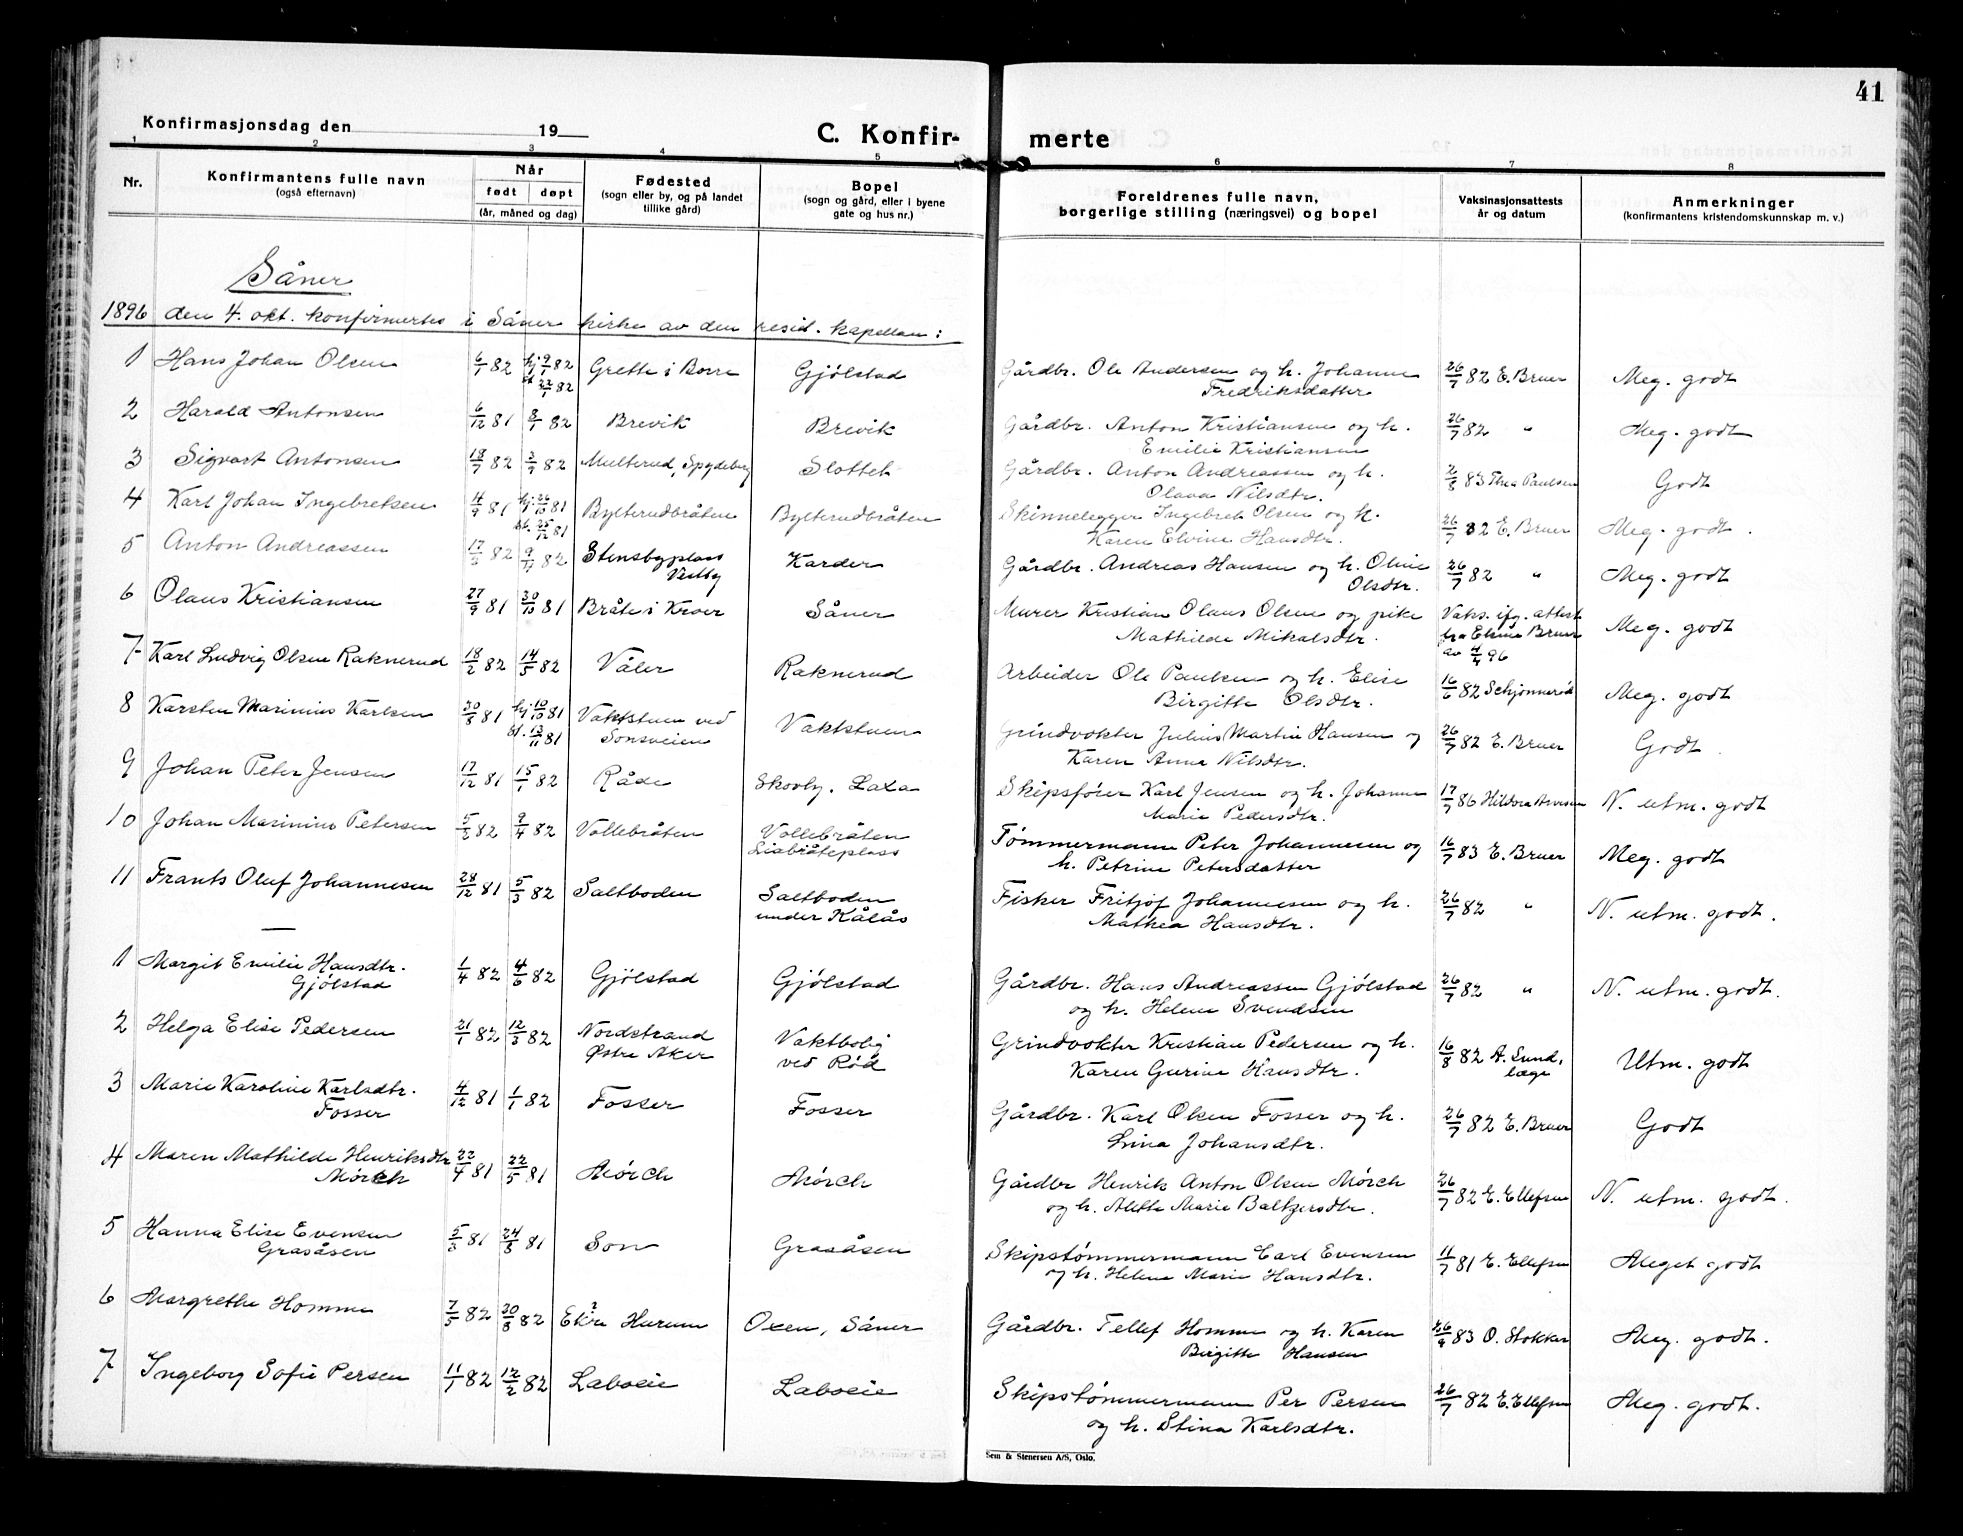 41
Konfirmasjonsdag den 19
C. Konfir-
merte
1 2 3 4 5 6 7 8
Nr.
Konfirmantens fulle navn
(også efternavn)
Når
født døpt
(år, måned og dag)
Fødested
(sogn eller by, og på landet
tillike gård)
Bopel
(sogn og gård, eller i byene
gate og hus nr.)
Foreldrenes fulle navn,
borgerlige stilling (næringsvei) og bopel
Vaksinasjonsattests
år og datum
Anmerkninger
(konfirmantens kristendomskunnskap m. v.)
Såner
1896 den 4. okt. konfirmertes i Såner kirke av den resid. kapellan:
1 Hans Johan Olsen 6/1 82 hj. 9/1 82 Grette i Borre Gjølstad Gårdbr. Ole Andersen og h. Johanne 26/7 82 E. Bruer Meg. godt
22/1 82 Fredriksdatter
2 Harald Antonsen 6/12 81 8/1 82 Brevik Brevik Gårdbr. Anton Kristiansen og h. 26/7 82 " Meg. godt
Emilie Kristiansen
3 Sigvart Antonsen 18/7 82 3/9 82 Multerud, Spydeberg Slottet Gårdbr. Anton Andreassen og h. 2/8 83 Thea Paulsen Godt
Olava Nilsdtr.
4 Karl Johan Ingebretsen 14/9 81 hj. 26/10 81 Bylterudbråten Bylterudbråten Skinnelegger Ingebret Olsen og h. 26/7 82 E. Bruer Meg. godt.
25/12 81 Karen Elvine Hansdtr.
5 Anton Andreassen 17/2 82 9/4 82 Stensbyplass Karder Gårdbr. Andreas Hansen og h. Oline 26/7 82 " Meg. godt
Vestby Olsdtr.
6 Olaus Kristiansen 27/9 81 30/10 81 Bråte i Kroer Såner Murer Kristian Olaus Olsen og pike Vaks. ifg. attest Meg. godt
Mathilde Mikalsdtr. fra Elvine Bruer
av 4/4 96
7 Karl Ludvig Olsen Raknerud 18/2 82 14/5 82 Våler Raknerud Arbeider Ole Paulsen og h. Elise 16/6 82 Schjønnerød Meg. godt
Birgitte Olsdtr.
8 Karsten Marinius Karlsen 30/8 81 hj. 10/10 81 Vaktstuen ved Vaktstuen Grindvokter Julius Martin Hansen og 26/7 82 E. Bruer Godt.
13/11 81 Sonsveien Karen Anna Nilsdtr.
9 Johan Peter Jensen 17/12 81 15/1 82 Råde Skovby. Laxa Skipsfører Karl Jensen og h. Johanne 17/7 86 Hildora Arvesen N. utm. godt
Marie Pedersdtr.
10 Johan Marinius Petersen 5/2 82 9/4 82 Vollebråten Vollebråten Tømmermann Peter Johannesen og 16/7 83 E. Bruer Meg. godt
Liabråteplass h. Petrine Petersdatter
11 Frants Oluf Johannesen 28/12 81 5/3 82 Saltboden Saltboden Fisker Fritjof Johannesen og h. 26/7 82 " N. utm. godt.
under Kålås Mathea Hansdtr.
1 Margit Emilie Hansdtr. 1/4 82 4/6 82 Gjølstad Gjølstad Gårdbr. Hans Andreassen Gjølstad 26/7 82 " N. utm. godt.
Gjølstad og h. Helene Svendsen
2 Helga Elise Pedersen 21/1 82 12/3 82 Nordstrand Vaktbolig Grindvokter Kristian Pedersen og h. 16/8 82 A. Lund, Utm. godt
Østre Aker ved Rød Karen Gurine Hansdtr. læge
3 Marie Karoline Karlsdtr. 4/12 81 1/1 82 Fosser Fosser Gårdbr. Karl Olsen Fosser og h. 26/7 82 E. Bruer Godt
Fosser Lina Johansdtr.
4 Maren Mathilde Henriksdtr 22/4 81 22/5 81 Mørch Mørch Gårdbr Henrik Anton Olsen Mørch 26/7 82 E. Ellefsen N. utm. godt.
Mørch og h. Alette Marie Baltzersdtr.
5 Hanna Elise Evensen 5/3 81 24/3 81 Son Grasåsen Skipstømmermann Carl Evensen 11/7 81 E. Ellefsen Meget godt
Grasåsen og h. Helene Marie Hansdtr.
6 Margrethe Homme 7/5 82 20/8 82 Ekre ? Hurum Oxen, Såner Gårdbr. Tellef Homme og h. Karen 26/9 83 O. Stokker Meg. godt.
Birgitte Hansen
7 Ingeborg Sofie Persen 11/1 82 12/2 82 Laboeie Laboeie Skipstømmermann Per Persen 26/7 82 E. Ellefsen Meg. godt.
og h. Stina Karlsdtr.
Sem & Stenersen A/S, Oslo.